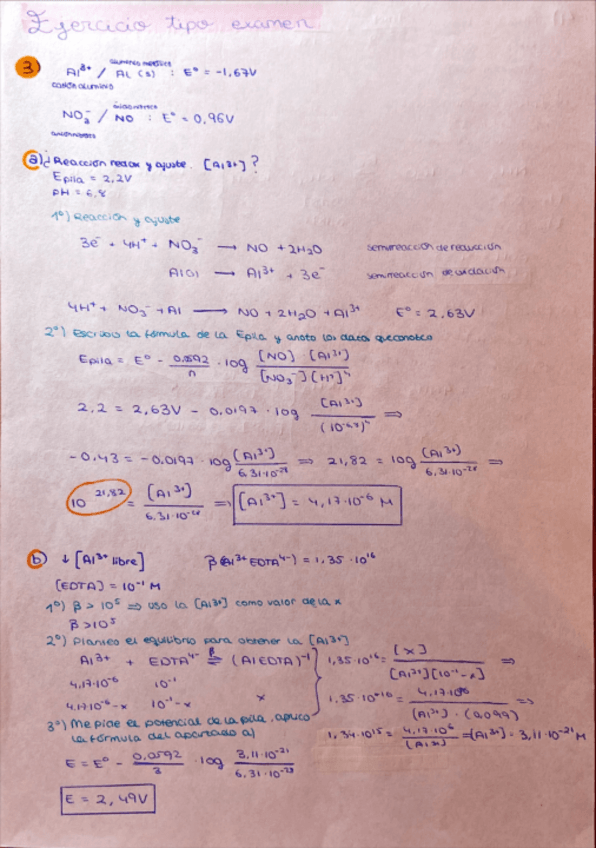 Ejercicio tipo examen
3)
aluminio metálico
Al³⁺ / Al (s) : E° = -1,67V
catión aluminio
NO₃⁻ / NO : E° = 0,96V
a) ¿Reacción redox y ajuste. [Al³⁺]?
Epila = 2,2V
pH = 6,8
1º) Reacción y ajuste
3e⁻ + 4H⁺ + NO₃⁻ → NO + 2H₂O semirreacción de reducción
Al(s) → Al³⁺ + 3e⁻ semirreacción de oxidación
4H⁺ + NO₃⁻ + Al → NO + 2H₂O + Al³⁺ E° = 2,63V
2º) Escribo la fórmula de la Epila y anoto los datos que conozco
Epila = E° - 0,0592/n · log [NO]·[Al³⁺]/[NO₃⁻][H⁺]⁴
2,2 = 2,63V - 0,0197 · log [Al³⁺]/(10⁻⁶·⁸)⁴ ⇒
-0,43 = -0,0197 · log [Al³⁺]/6,31·10⁻²⁸ ⇒ 21,82 = log [Al³⁺]/6,31·10⁻²⁸ ⇒
10^21,82 = [Al³⁺]/6,31·10⁻²⁸ ⇒ [Al³⁺] = 4,17·10⁻⁶ M
b) ↓ [Al³⁺ libre] β(Al³⁺EDTA⁴⁻) = 1,35·10¹⁶
[EDTA] = 10⁻¹ M
1º) β > 10⁵ ⇒ uso la [Al³⁺] como valor de la x
β > 10⁵
2º) Planteo el equilibrio para obtener la [Al³⁺]
Al³⁺ + EDTA⁴⁻ ⇌ (AlEDTA)⁻¹ β
4,17·10⁻⁶ 10⁻¹
4,17·10⁻⁶-x 10⁻¹-x x
1,35·10¹⁶ = [x]/[Al³⁺][10⁻¹-x] ⇒
1,35·10⁺¹⁶ = 4,17·10⁶/[Al³⁺]·(0,099) ⇒
1,34·10¹⁵ = 4,17·10⁶/[Al³⁺] ⇒ [Al³⁺] = 3,11·10⁻²¹ M
3º) Me pide el potencial de la pila, aplico
la fórmula del apartado a)
E = E° - 0,0592/3 · log 3,11·10⁻²¹/6,31·10⁻²⁸
E = 2,49V